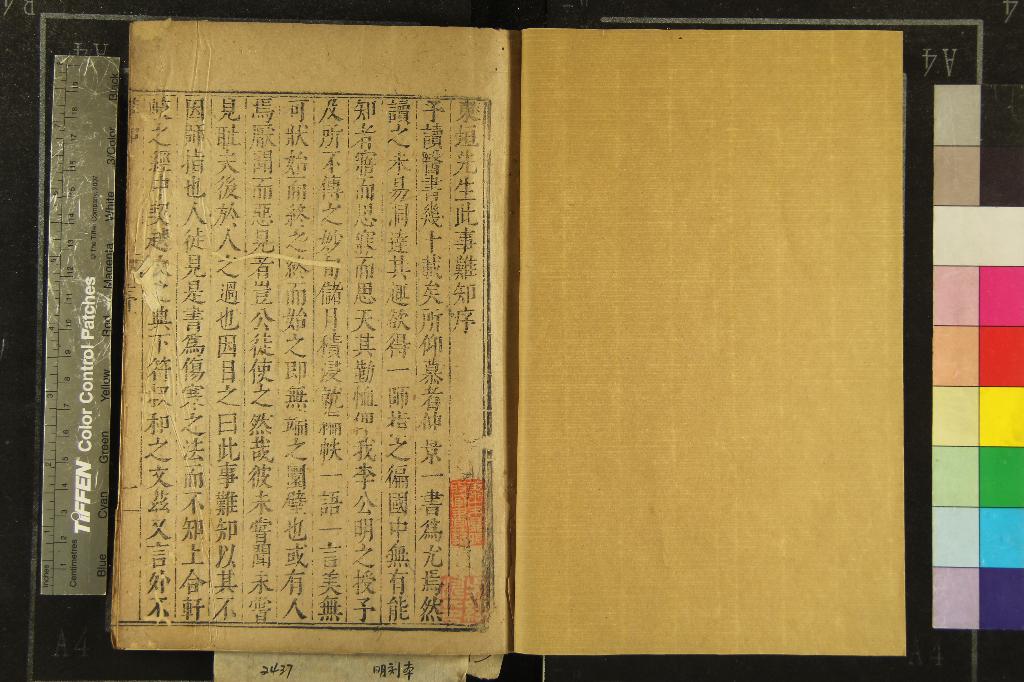 東垣先生此事難知序
予讀醫書幾十載矣所仰慕者仲景一書爲尤焉然
讀之未易洞達其趣欲得一師指之徧國中無有能
知者寤而思寐而思天其勤恤俾我李公明之授予
及所不傳之妙旬儲月積浸就編帙一語一言美無
可狀始而終之終而始之即無端之圜璧也或有人
焉厭聞而惡見者豈公徒使之然哉彼未嘗聞未嘗
見耻夫後於人之過也因目之曰此事難知以其不
因師指也人徒見是書爲傷寒之法而不知上合軒
岐之經中契越人之典下符叔和之文兹又言外不
2437
明刻本
TIFFEN Color Control Patches
© The Tiffen Company, 2007
Inches
Centimetres
Blue
Cyan
Green
Yellow
Red
Magenta
White
3/Color
Black
A4
A4
A4
A4